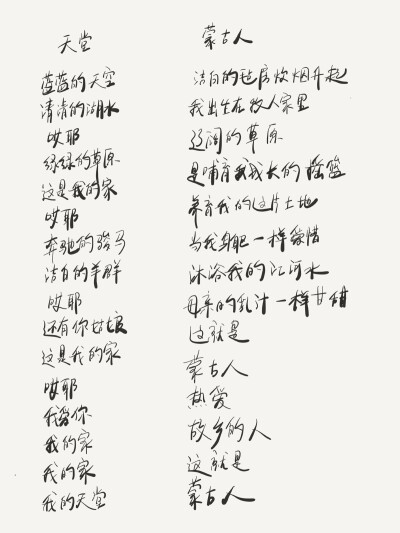 天堂
蓝蓝的天空
清清的湖水
哎耶
绿绿的草原
这是我的家
哎耶
奔驰的骏马
洁白的羊群
哎耶
还有你姑娘
这是我的家
哎耶
我爱你
我的家
我的家
我的天堂
蒙古人
洁白的毡房炊烟升起
我出生在牧人家里
辽阔的草原
是哺育我长的摇篮
养育我的这片土地
当我身躯一样爱惜
沐浴我的江河水
母亲的乳汁一样甘甜
这就是
蒙古人
热爱
故乡的人
这就是
蒙古人